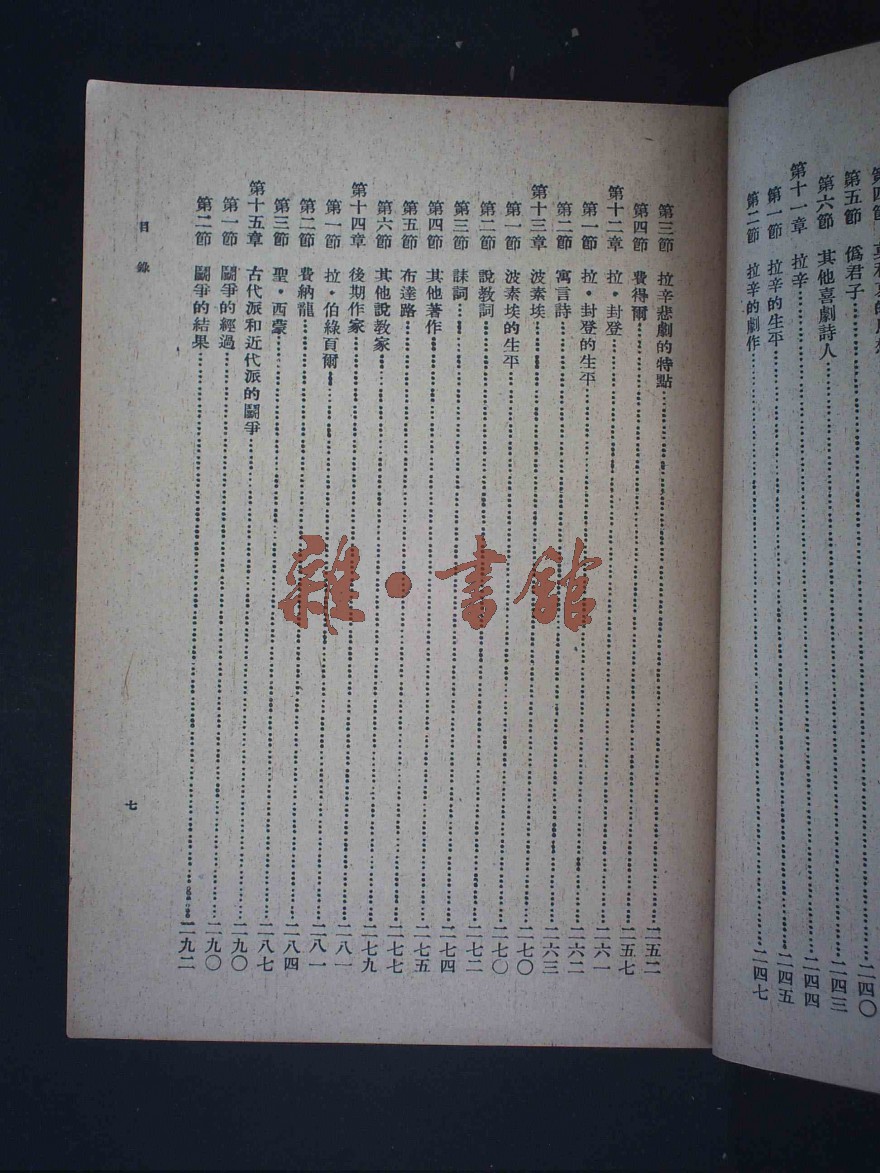 第五節 僞君子……二四〇
第六節 其他喜劇詩人……二四三
第十一章 拉辛……二四四
第一節 拉辛的生平……二四五
第二節 拉辛的劇作……二四七
第三節 拉辛悲劇的特點……二五二
第四節 費得爾……二五七
第十二章 拉·封登……二六一
第一節 拉·封登的生平……二六二
第二節 寓言詩……二六三
第十三章 波素埃……二七〇
第一節 波素埃的生平……二七〇
第二節 說教詞……二七二
第三節 誄詞……二七四
第四節 其他著作……二七五
第五節 布達路……二七七
第六節 其他說教家……二七九
第十四章 後期作家……二八一
第一節 拉·伯綠頁爾……二八一
第二節 費納龍……二八四
第三節 聖·西蒙……二八七
第十五章 古代派和近代派的鬭爭……二九〇
第一節 鬭爭的經過……二九〇
第二節 鬭爭的結果……二九二
目錄
七
雜·書館